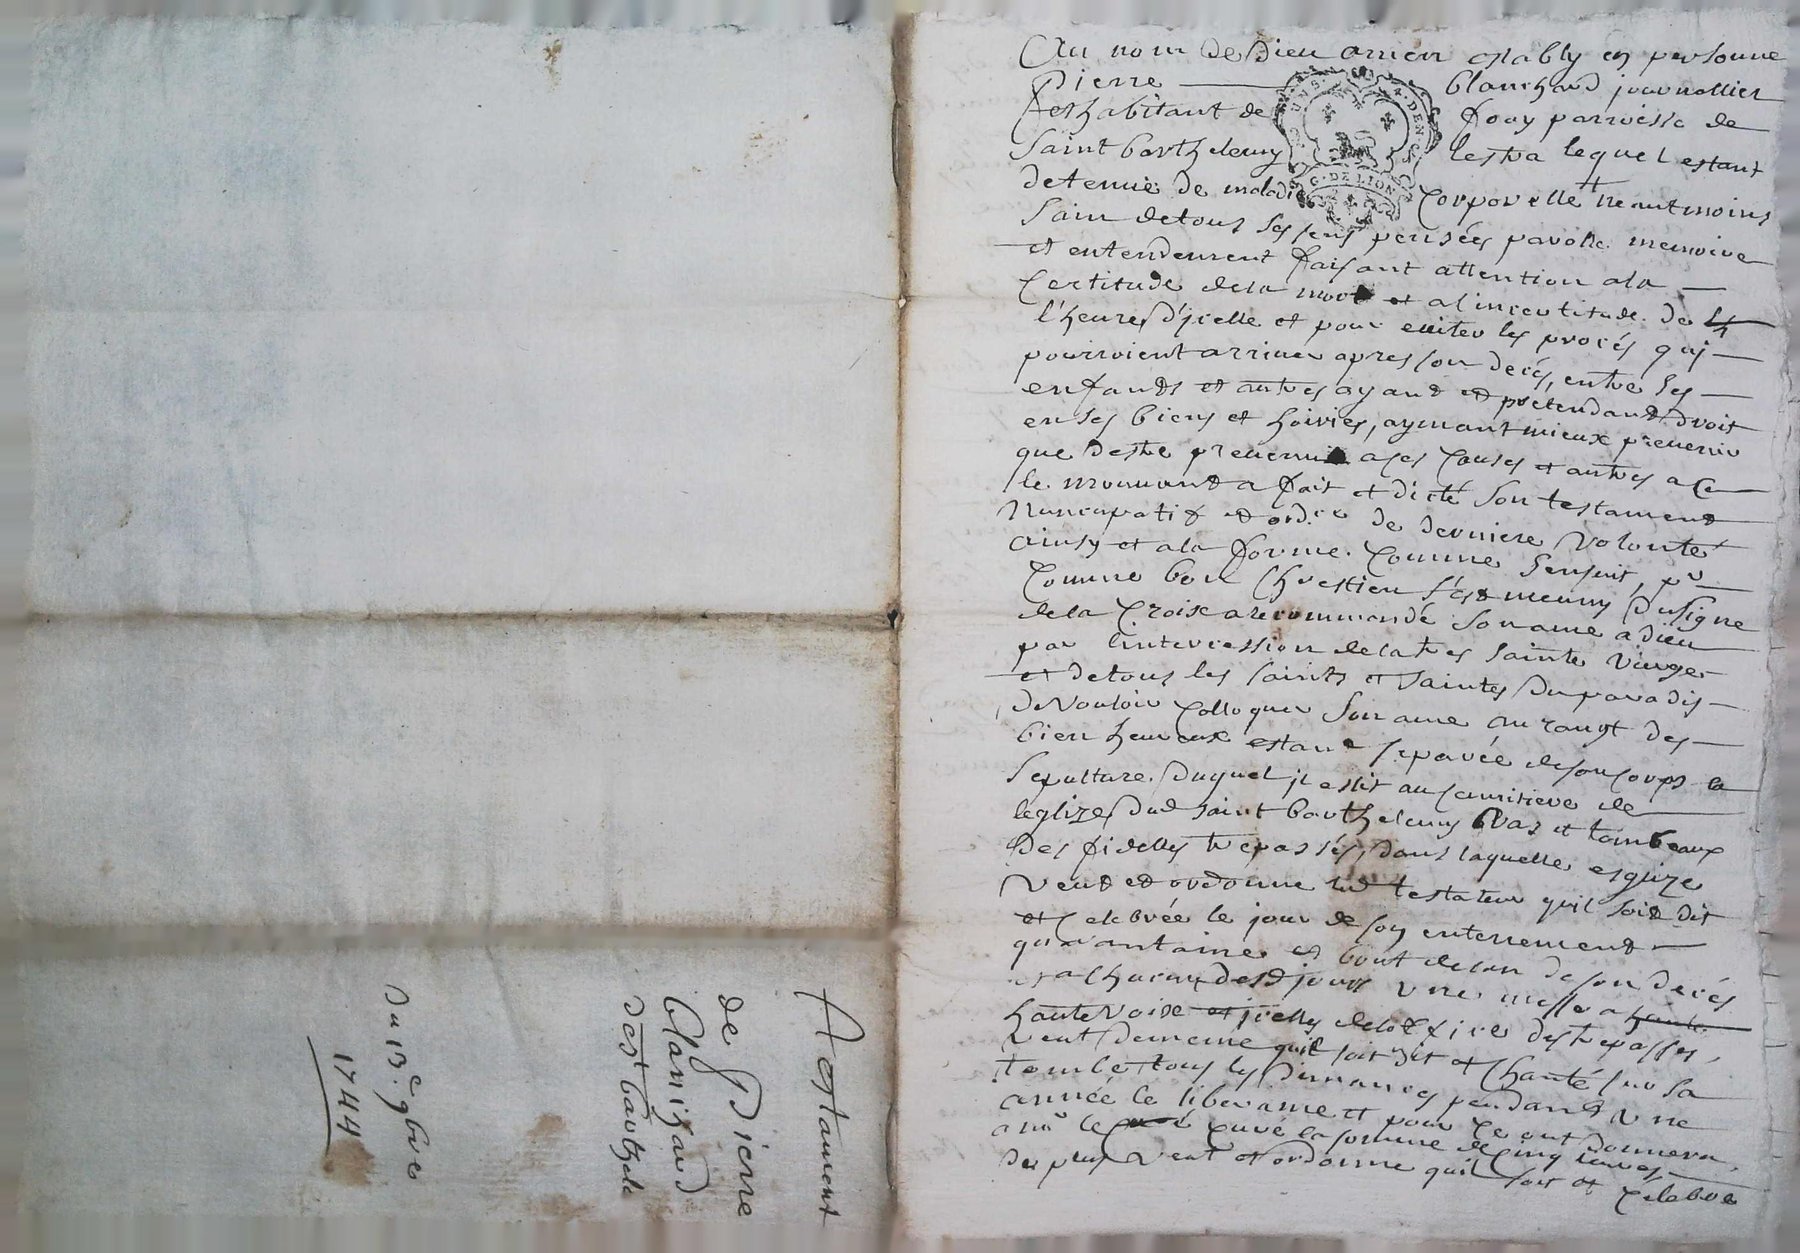 Testament
de Pierre
Blanchard
de St Barthele
du 13e 9bre
1744
Au nom de Dieu amen estably en personne
Pierre Blanchard journallier
et habitant de Fouy parroisse de
Saint Barthelemy Lestra lequel estant
detenue de maladie Corporelle neantmoins
sain de tous ses sens pensées parolle memoire
et entendement faisant attention a la
Certitude de la mort et a lincertitude de
l'heure d'jcelle et pour eviter les procés quj
pourroient arriver apres son decés, entre ses
enfants et autres ayant et pretendant droit
en ses biens et hoiries, aymant mieux prevenir
que destre prevenu a ces Causes et autres a ce
le mouvant a fait et dicté son testament
Nuncupatif et ord.ce de derniere volonté
ainsy et a la forme Comme sensuit, pr
Comme bon Chrestien s'est muny du signe
de la Croix a recommandé son ame a dieu
par lintercession de la tres sainte vierge
et de tous les saints et saintes du paradis
de vouloir Colloquer son ame au rangt des
bien heureux estant separée de son corps la
sepulture duquel jl eslit au cemitiere de
leglize dud saint Barthelemy vas et tombeaux
des fidelles trepassés, dans laquelle esglize
veut et ordonne led testateur quil soit dit
et Celebrée le jour de son enterrement
quarantaine et bout de lan de son decés
a chacun desd jours une messe a haute
haute voix et jcelles de loffice des trepasses,
veut de meme quil soit dit et Chanté sur sa
tombe tous les dimanches pendant une
année le libera me et pour Ce ont donnera
a mr le curé la somme de Cinq livres
de plus veut et ordonne quil soit Celebré
G. DE LION